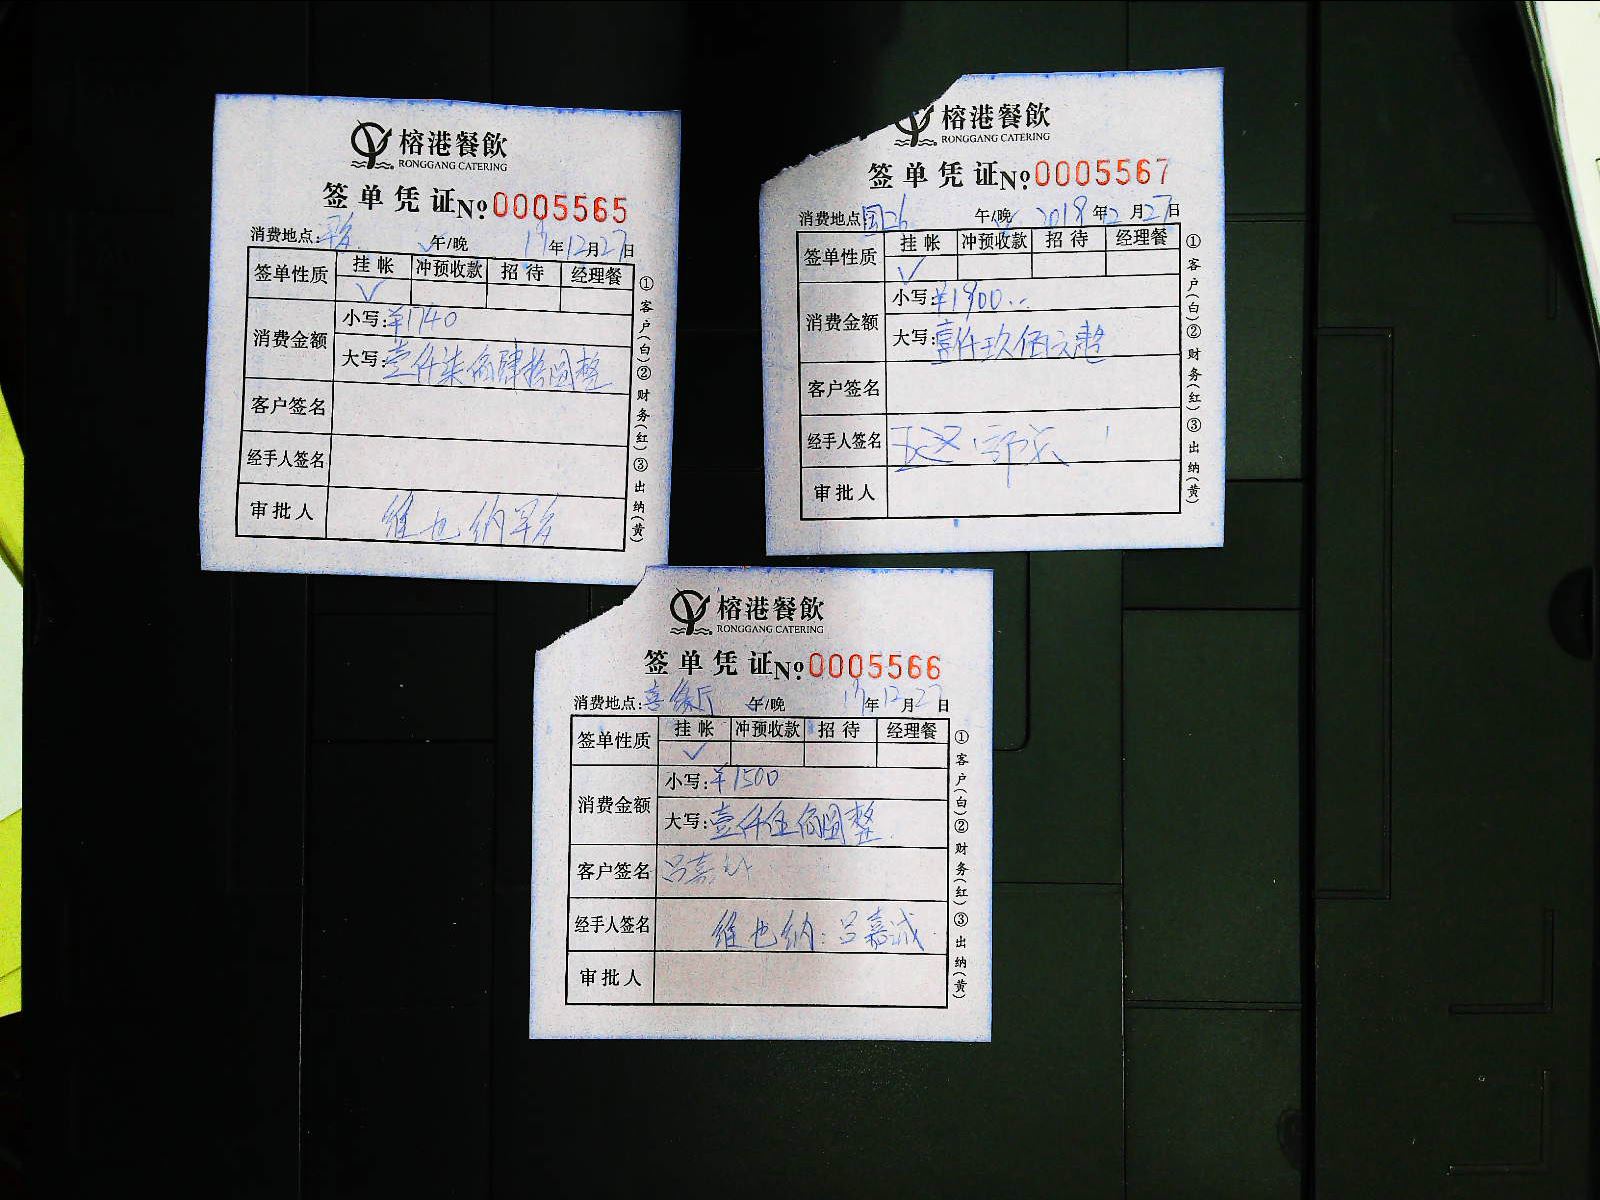 榕港餐飲
RONGGANG CATERING
签单凭证 № 0005565
消费地点: 早餐 午/晚 19年12月27日
签单性质 挂帐 冲预收款 招待 经理餐
✓
消费金额 小写: ¥1740
大写: 壹仟柒佰肆拾圆整
客户签名
经手人签名
审批人 维也纳早餐
①客户(白)②财务(红)③出纳(黄)
榕港餐飲
RONGGANG CATERING
签单凭证 № 0005567
消费地点: 午/晚 2019年12月27日
签单性质 挂帐 冲预收款 招待 经理餐
✓
消费金额 小写: ¥1900..
大写: 壹仟玖佰元整
客户签名
经手人签名
审批人
①客户(白)②财务(红)③出纳(黄)
榕港餐飲
RONGGANG CATERING
签单凭证 № 0005566
消费地点: 午/晚 19年12月27日
签单性质 挂帐 冲预收款 招待 经理餐
✓
消费金额 小写: ¥1500
大写: 壹仟伍佰圆整
客户签名 吕嘉
经手人签名 维也纳: 吕嘉诚
审批人
①客户(白)②财务(红)③出纳(黄)